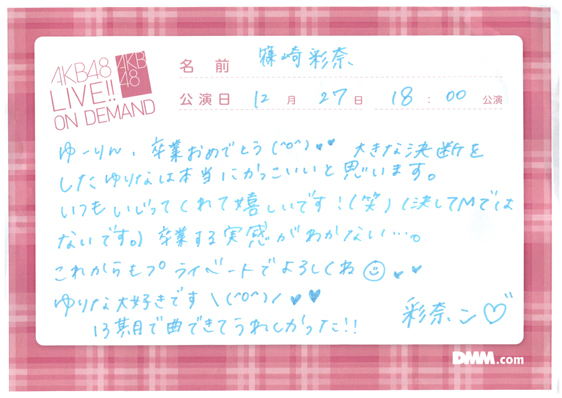 AKB48
LIVE!!
ON DEMAND
AKB
48
名前 篠崎彩奈
公演日 12月27日 18:00公演
ゆーりん、卒業おめでとう(^o^)♥♥ 大きな決断を
したゆりなは本当にかっこいいと思います。
いつもいじってくれて嬉しいです!(笑)(決してMでは
ないです。)卒業する実感がわかない…。
これからもプライベートでよろしくね☺♥♥
ゆりな大好きです\(^o^)/♥♥
13期で曲できてうれしかった!!
彩奈ン♡
DMM.com